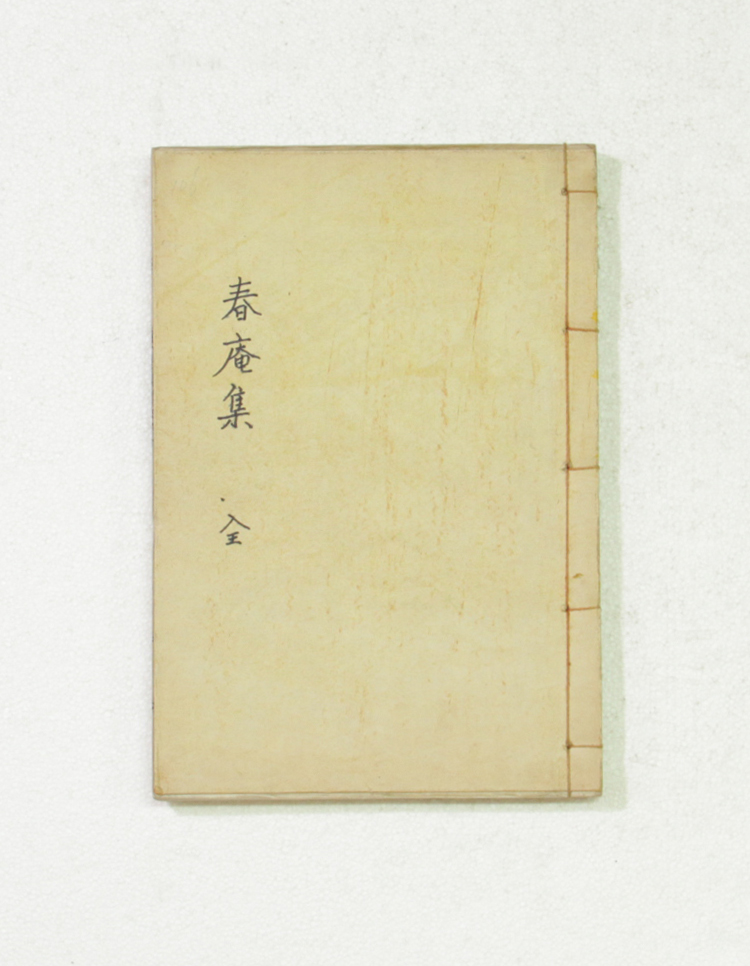 春庵集 全